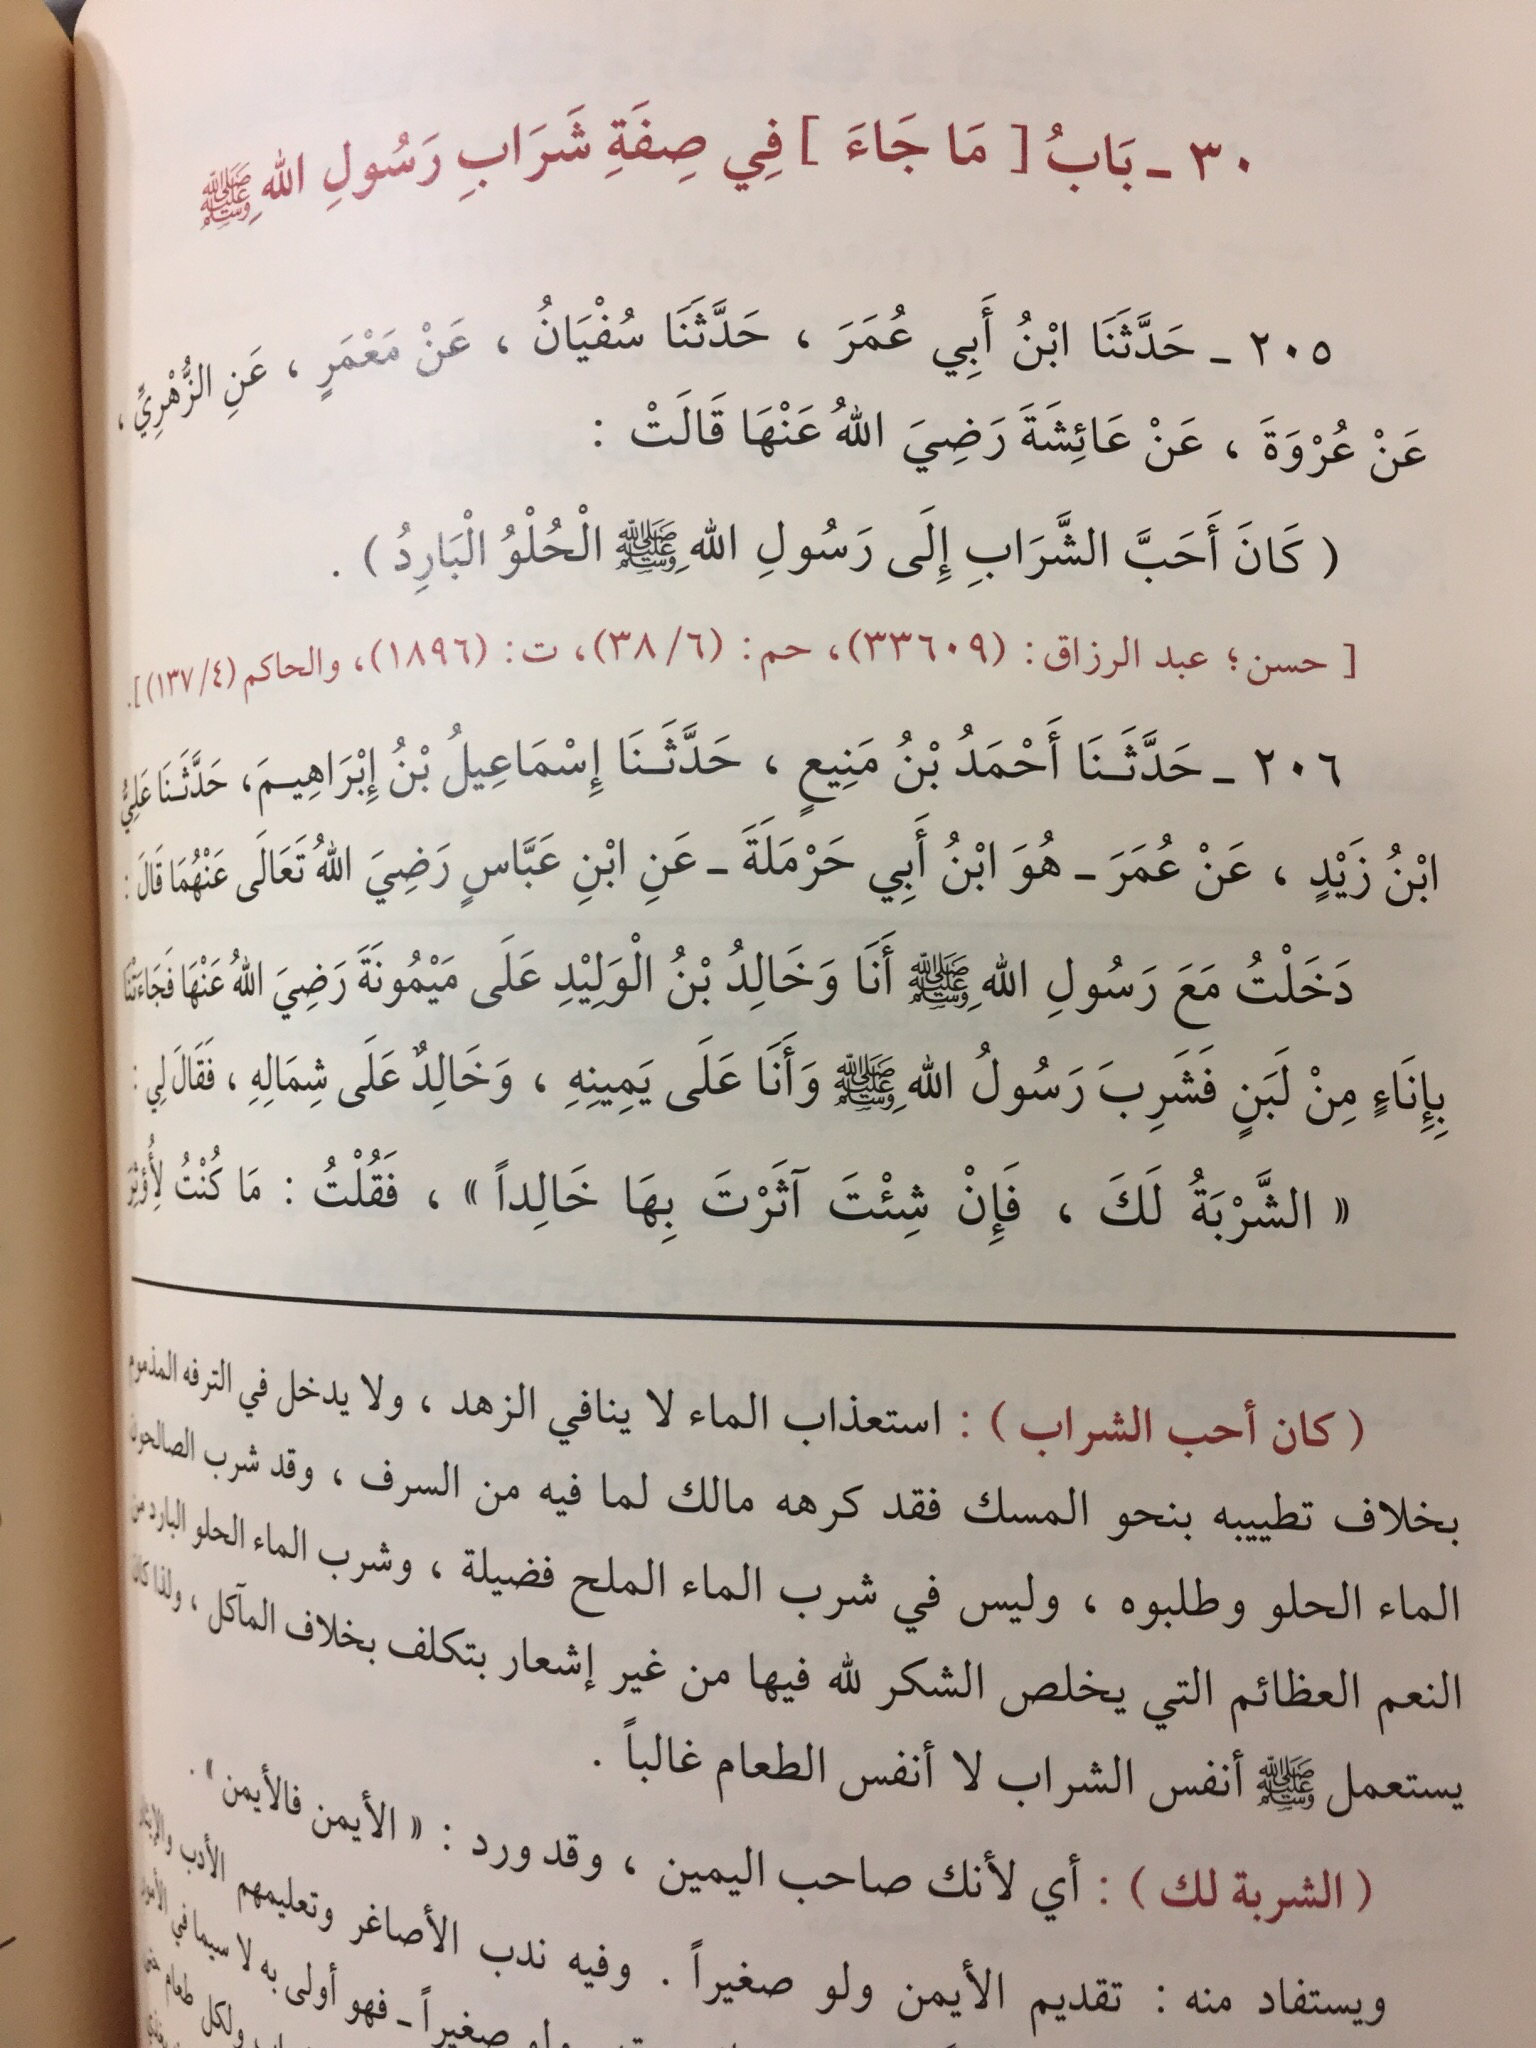 ٣٠ ـ بَابُ [ مَا جَاءَ ] فِي صِفَةِ شَرَابِ رَسُولِ اللهِ ﷺ
٢٠٥ ـ حَدَّثَنَا ابْنُ أَبِي عُمَرَ ، حَدَّثَنَا سُفْيَانُ ، عَنْ مَعْمَرٍ ، عَنِ الزُّهْرِيِّ ،
عَنْ عُرْوَةَ ، عَنْ عَائِشَةَ رَضِيَ اللهُ عَنْهَا قَالَتْ :
( كَانَ أَحَبَّ الشَّرَابِ إِلَى رَسُولِ اللهِ ﷺ الْحُلْوُ الْبَارِدُ ) .
[ حسن؛ عبد الرزاق: (٣٣٦٠٩)، حم: (٣٨/٦)، ت: (١٨٩٦)، والحاكم (١٣٧/٤)].
٢٠٦ ـ حَدَّثَنَا أَحْمَدُ بْنُ مَنِيعٍ ، حَدَّثَنَا إِسْمَاعِيلُ بْنُ إِبْرَاهِيمَ، حَدَّثَنَا عَلِيُّ
ابْنُ زَيْدٍ ، عَنْ عُمَرَ ـ هُوَ ابْنُ أَبِي حَرْمَلَةَ ـ عَنِ ابْنِ عَبَّاسٍ رَضِيَ اللهُ تَعَالَى عَنْهُمَا قَالَ :
دَخَلْتُ مَعَ رَسُولِ اللهِ ﷺ أَنَا وَخَالِدُ بْنُ الْوَلِيْدِ عَلَى مَيْمُونَةَ رَضِيَ اللهُ عَنْهَا فَجَاءَتْنَا
بِإِنَاءٍ مِنْ لَبَنٍ فَشَرِبَ رَسُولُ اللهِ ﷺ وَأَنَا عَلَى يَمِينِهِ ، وَخَالِدٌ عَلَى شِمَالِهِ ، فَقَالَ لِي :
« الشَّرْبَةُ لَكَ ، فَإِنْ شِئْتَ آثَرْتَ بِهَا خَالِداً » ، فَقُلْتُ : مَا كُنْتُ لِأُؤْثِرَ
( كان أحب الشراب ) : استعذاب الماء لا ينافي الزهد ، ولا يدخل في الترفه المذموم
بخلاف تطييبه بنحو المسك فقد كرهه مالك لما فيه من السرف ، وقد شرب الصالحون
الماء الحلو وطلبوه ، وليس في شرب الماء الملح فضيلة ، وشرب الماء الحلو البارد من
النعم العظائم التي يخلص الشكر لله فيها من غير إشعار بتكلف بخلاف المآكل ، ولذا كان
يستعمل ﷺ أنفس الشراب لا أنفس الطعام غالباً .
( الشربة لك ) : أي لأنك صاحب اليمين ، وقد ورد : « الأيمن فالأيمن » .
ويستفاد منه : تقديم الأيمن ولو صغيراً . وفيه ندب الأصاغر وتعليمهم الأدب والإيثار
ولو صغيراً ـ فهو أولى به لا سيما في الأمور
ولكل طعام